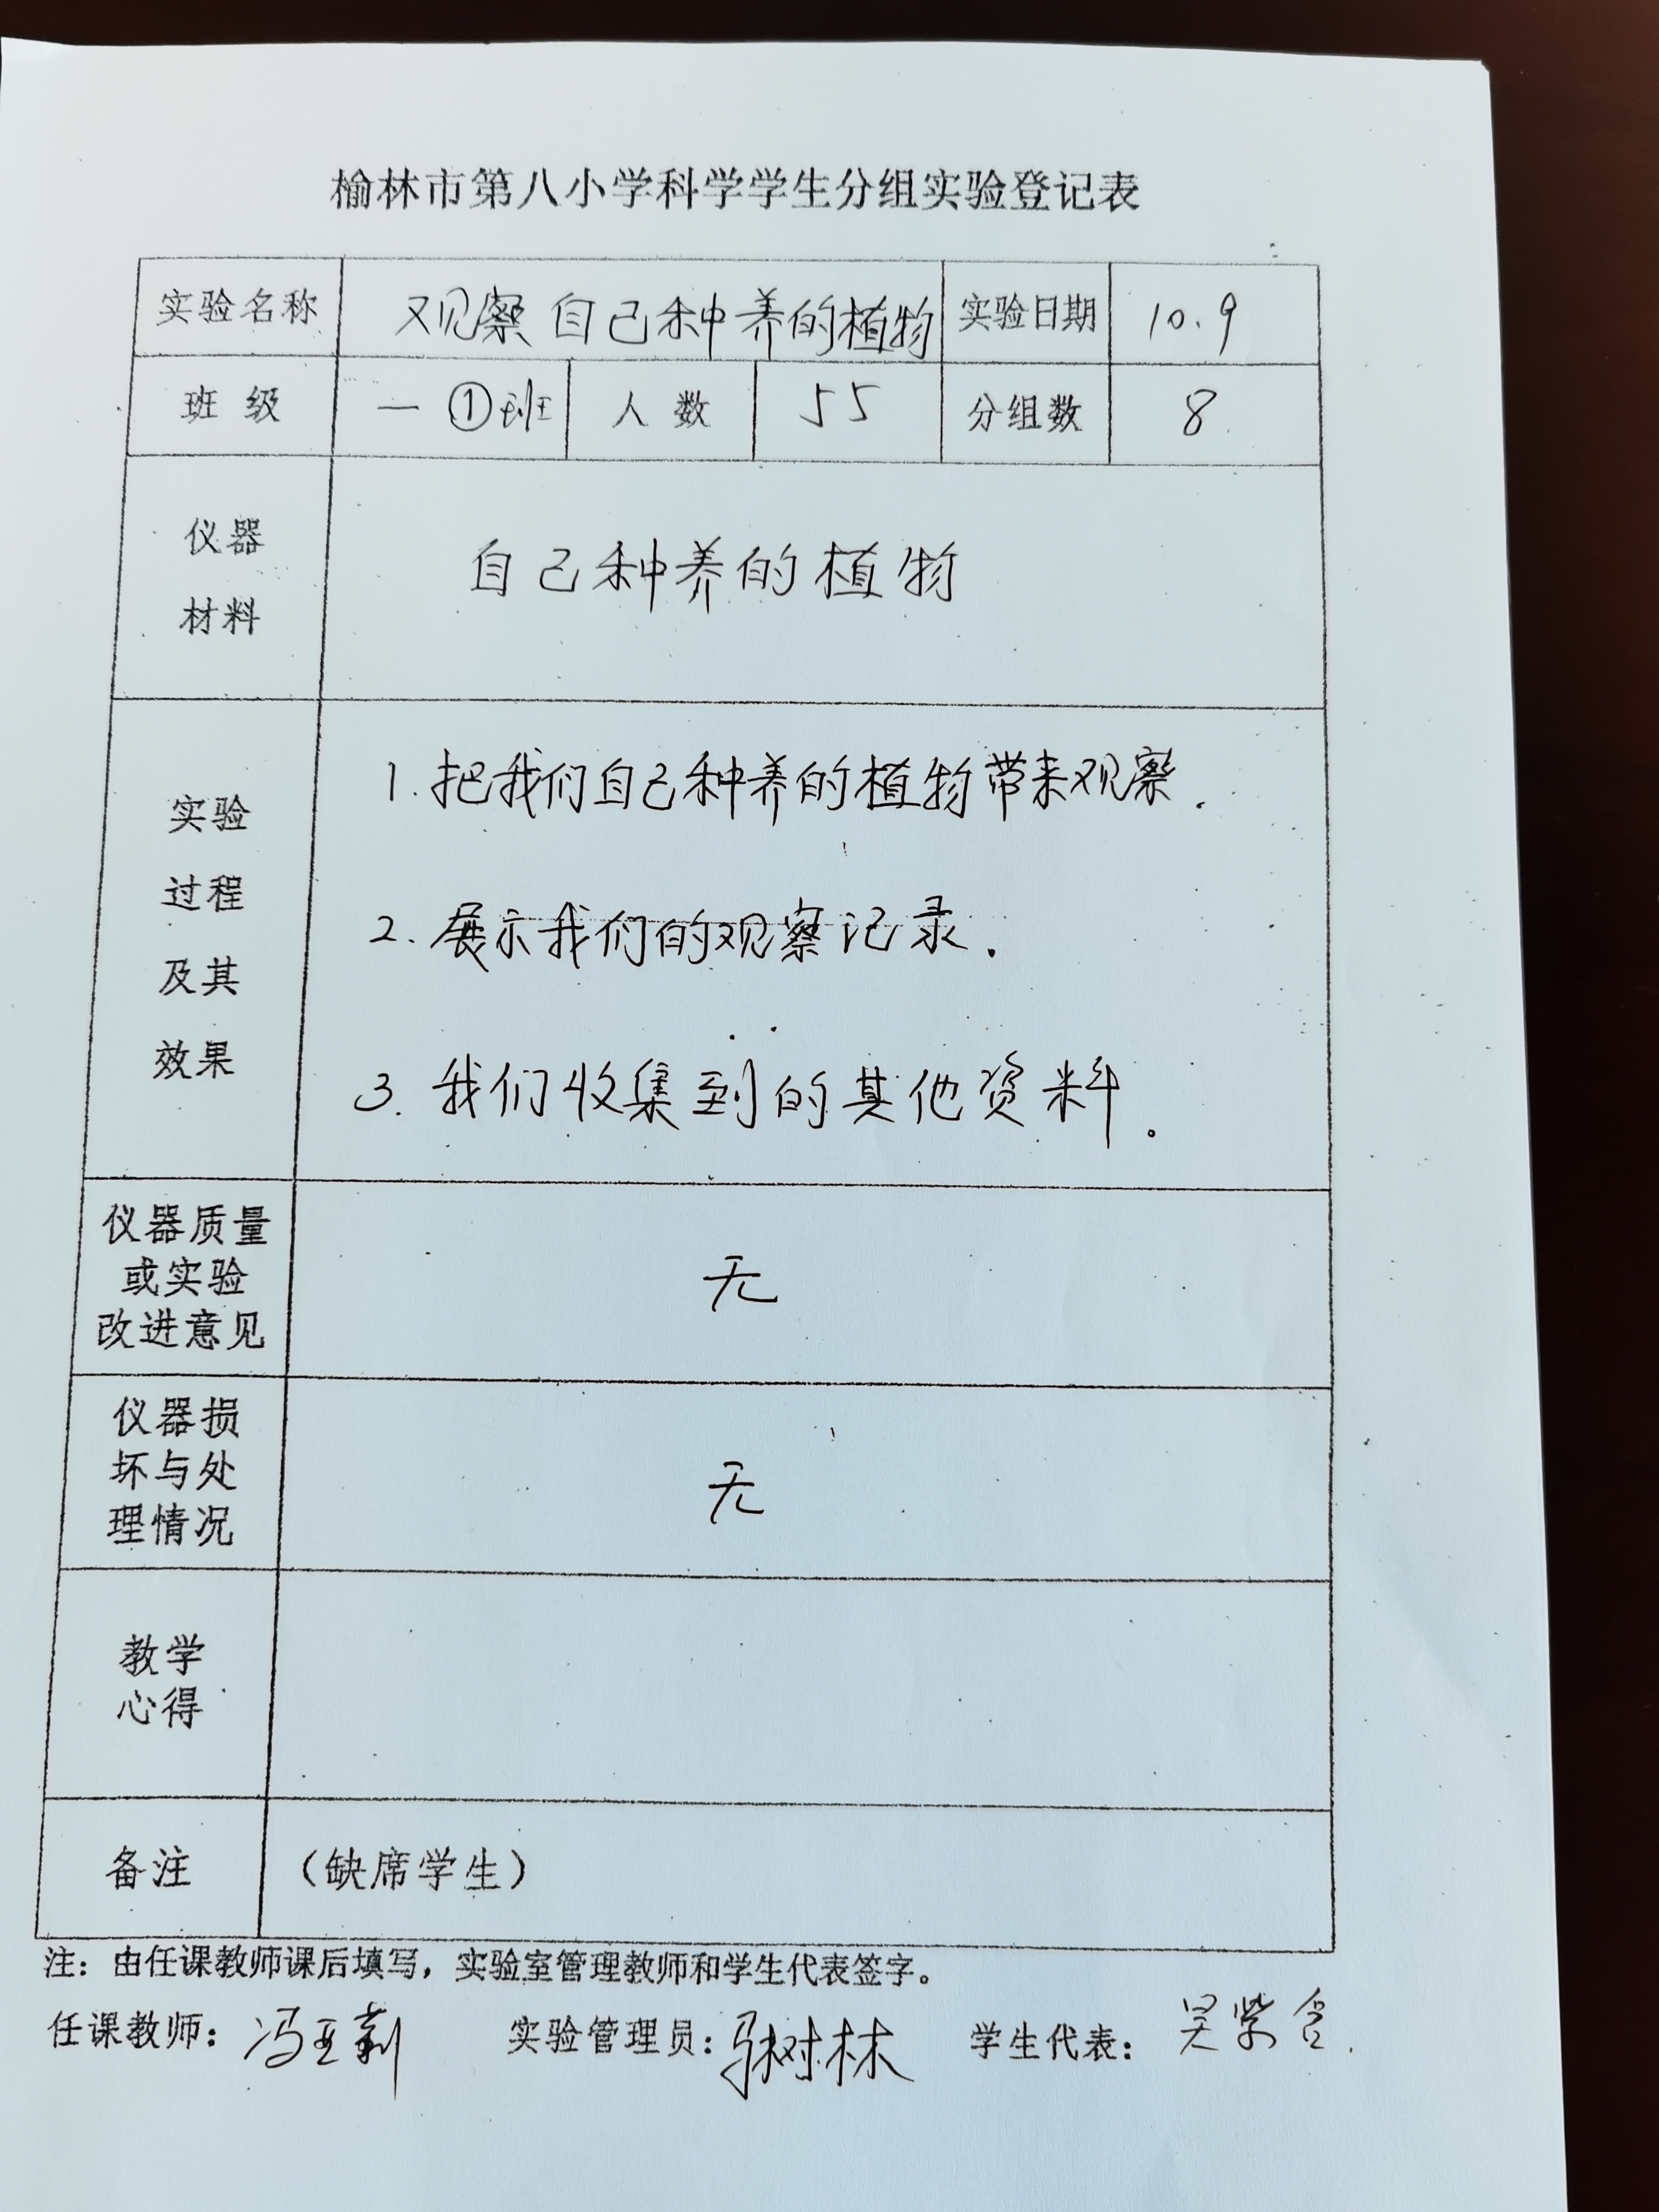 榆林市第八小学科学学生分组实验登记表
实验名称 观察自己种养的植物 实验日期 10.9
班级 一①班 人数 55 分组数 8
仪器
材料
自己种养的植物
实验
过程
及其
效果
1.把我们自己种养的植物带来观察.
2.展示我们的观察记录.
3.我们收集到的其他资料。
仪器质量
或实验
改进意见
无
仪器损
坏与处
理情况
无
教学
心得
备注 （缺席学生）
注：由任课教师课后填写，实验室管理教师和学生代表签字。
任课教师： 冯 实验管理员： 树林 学生代表： 吴紫